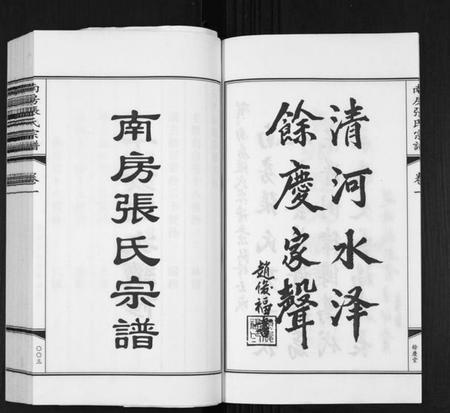 南房張氏宗譜
卷一
清河水泽
餘慶家聲
趙俊福書
餘慶堂
南房張氏宗譜
南房張氏宗譜
卷一
〇〇三